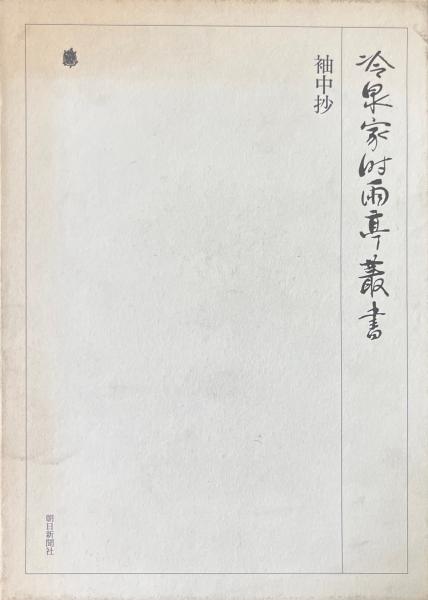 冷泉家时雨亭叢書
袖中抄
朝日新聞社